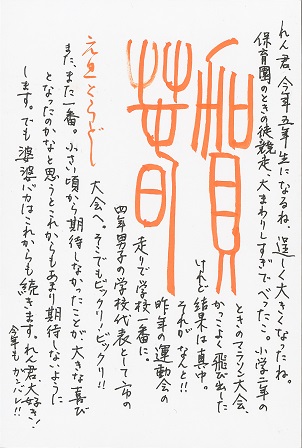 れん君、今年五年生になるね、逞しく大きくなったね。
保育園のときの徒競走、大まわりしすぎてべったこ。小学二年の
ときのマラソン大会、
かっこよく飛び出した
けれど
結果は真中。
それがなんと!!
昨年の運動会の
走りで学校一番に。
四年男子の学校代表として市の
大会へ。そこでもビックリ!ビックリ!!
また、また一番。小さい頃から期待しなかったことが大きな喜び
となったのかなと思うとこれからもあまり期待しないように
します。でも婆婆バカはこれからも続きます。れん君大好き!
今年もガンバレ!!
賀春
えとはとらどし